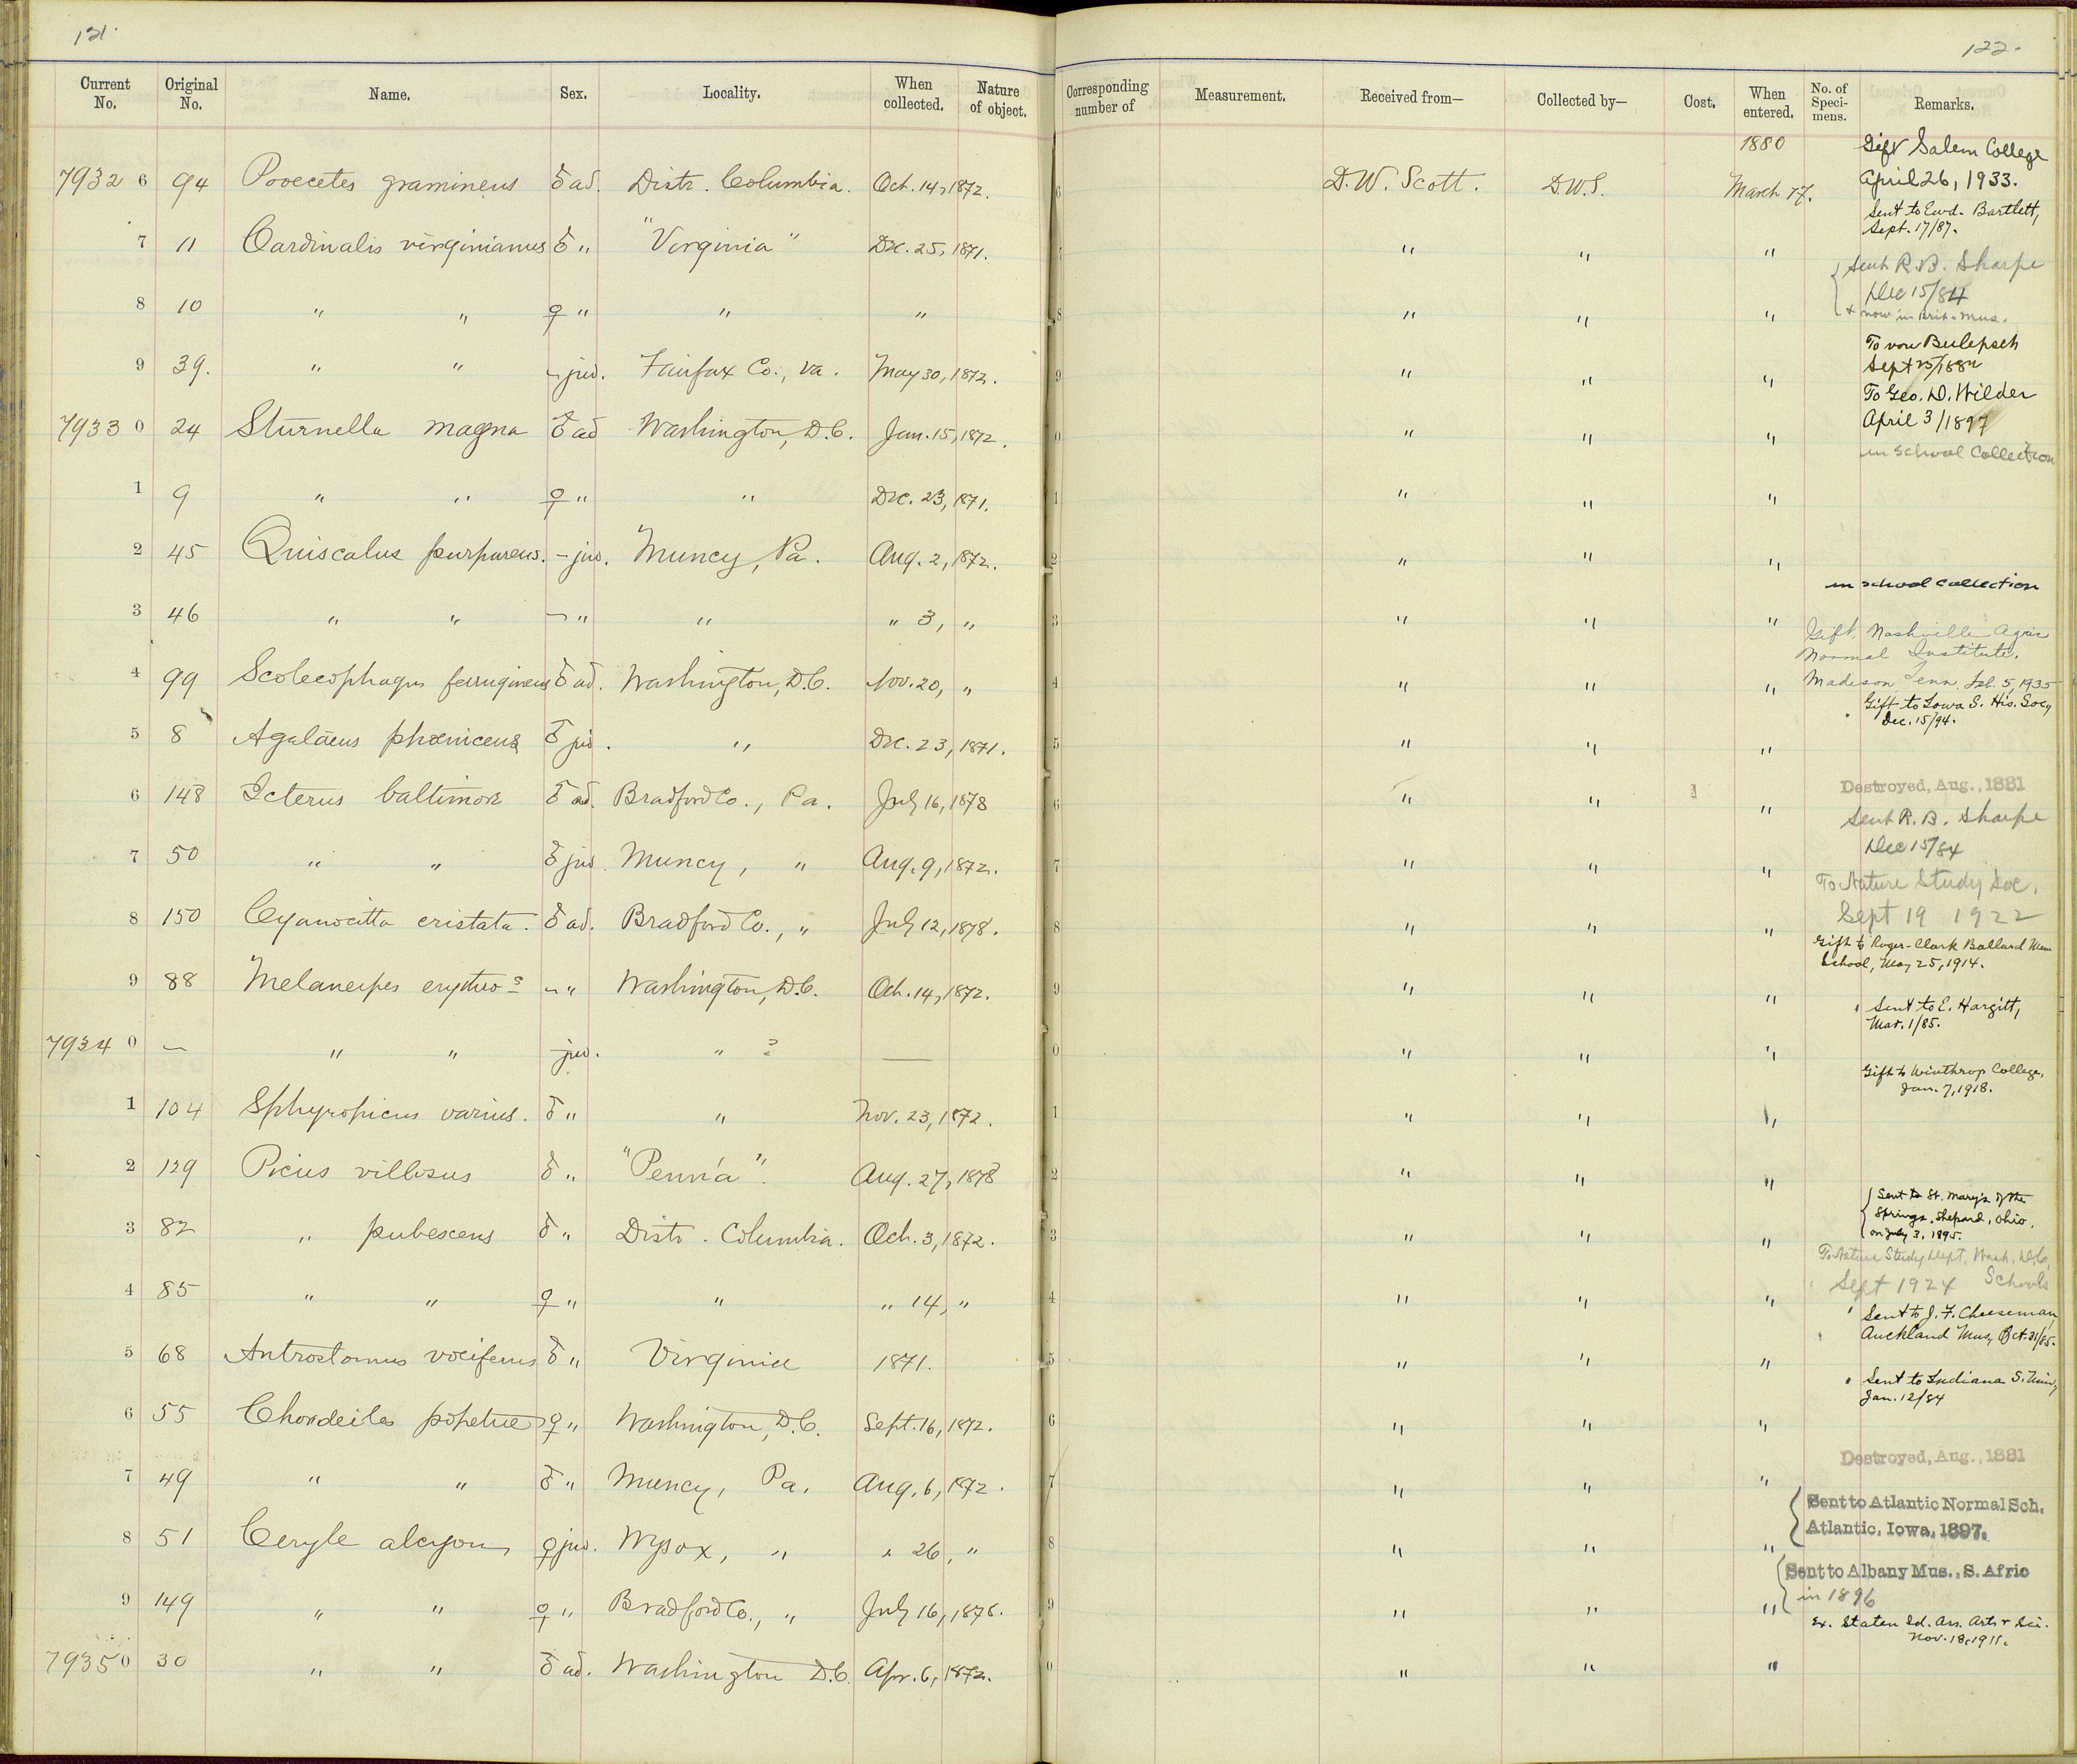 121.
Current No. Original No. Name. Sex. Locality. When collected. Nature of object.
79326 94 Pooecetes gramineus ♂ ad. Distr. Columbia. Oct. 14, 1872.
7 11 Cardinalis virginianus ♂ " "Virginia" Dec. 25, 1871.
8 10 " " ♀ " " "
9 39. " " - juv. Fairfax Co., Va. May 30, 1872.
79330 24 Sturnella magna ♂ ad Washington, D.C. Jan. 15, 1872.
1 9 " " ♀ " " Dec. 23, 1871.
2 45 Quiscalus purpureus. - juv. Muncy, Pa. Aug. 2, 1872.
3 46 " " - " " " 3, "
4 99 Scolecophagus ferrugineus ♂ ad. Washington, D.C. Nov. 20, "
5 8 Agelaeus phœniceus ♂ juv. " Dec. 23, 1871.
6 148 Icterus baltimore ♂ ad. Bradford Co., Pa. July 16, 1878
7 50 " " ♂ juv. Muncy, " Aug. 9, 1872.
8 150 Cyanocitta cristata. ♂ ad. Bradford Co., " July 12, 1878.
9 88 Melanerpes erythro-s - " Washington, D.C. Oct. 14, 1872.
79340 — " " - juv. " ? —
1 104 Sphyropicus varius. ♂ " " Nov. 23, 1872.
2 129 Picus villosus ♂ " "Penn'a". Aug. 27, 1878
3 82 " pubescens ♂ " Distr. Columbia. Oct. 3, 1872.
4 85 " " ♀ " " " 14, "
5 68 Antrostomus vociferus ♂ " Virginia 1871.
6 55 Chordeiles popetue ♀ " Washington, D.C. Sept. 16, 1872.
7 49 " " ♂ " Muncy, Pa. Aug. 6, 1872.
8 51 Ceryle alcyon, ♀ juv. Wysox, " " 26, "
9 149 " " ♀ " Bradford Co., " July 16, 1878.
79350 30 " " ♂ ad. Washington D.C. Apr. 6, 1872.
122.
Corresponding number of Measurement. Received from— Collected by— Cost. When entered. No. of Specimens. Remarks.
1880
Gift Salem College
6 D. W. Scott. D.W.S. March 17. April 26, 1933.
Sent to Ewd. Bartlett,
Sept. 17/87.
" " "
{ Sent R. B. Sharpe
Dec 15/84
+ now in Brit. Mus.
8 " " "
To von Berlepsch
Sept 25/1882
9 " " "
To Geo. D. Wilder
April 3/1897
0 " " "
in school Collection
1 " " "
2 " " "
in school collection
3 " " "
Gift. Nashville Agric
Normal Institute.
4 " " " Madison Tenn. Feb. 5, 1935
Gift to Iowa S. His. Socy
Dec. 15/94.
5 " " "
Destroyed, Aug., 1881
6 " " "
Sent R. B. Sharpe
Dec 15/84
7 " " "
To Nature Study Soc.
Sept 19 1922
8 " " "
Gift to Roger-Clark Ballard Mem
School, May 25, 1914.
9 " " "
Sent to E. Hargitt,
Mar. 1/85.
0 " " "
Gift to Winthrop College,
Jan. 7, 1918.
1 " " "
2 " " "
{ Sent to St. Mary's of the
Springs, Shepard, Ohio,
on July 3, 1895.
3 " " "
To Nature Study Dept. Wash. D.C.
Sept 1924 Schools
4 " " "
Sent to J. F. Cheeseman,
Auckland Mus, Oct. 31/85.
5 " " "
Sent to Indiana S. Univ,
Jan. 12/84
6 " " "
Destroyed, Aug., 1881
7 " " "
{ Sent to Atlantic Normal Sch.
Atlantic, Iowa, 1897.
8 " " "
{ Sent to Albany Mus., S. Afric
in 1896
9 " " "
Ex. Staten Id. Ass. Arts & Sci.
Nov. 18, 1911.
0 " " "